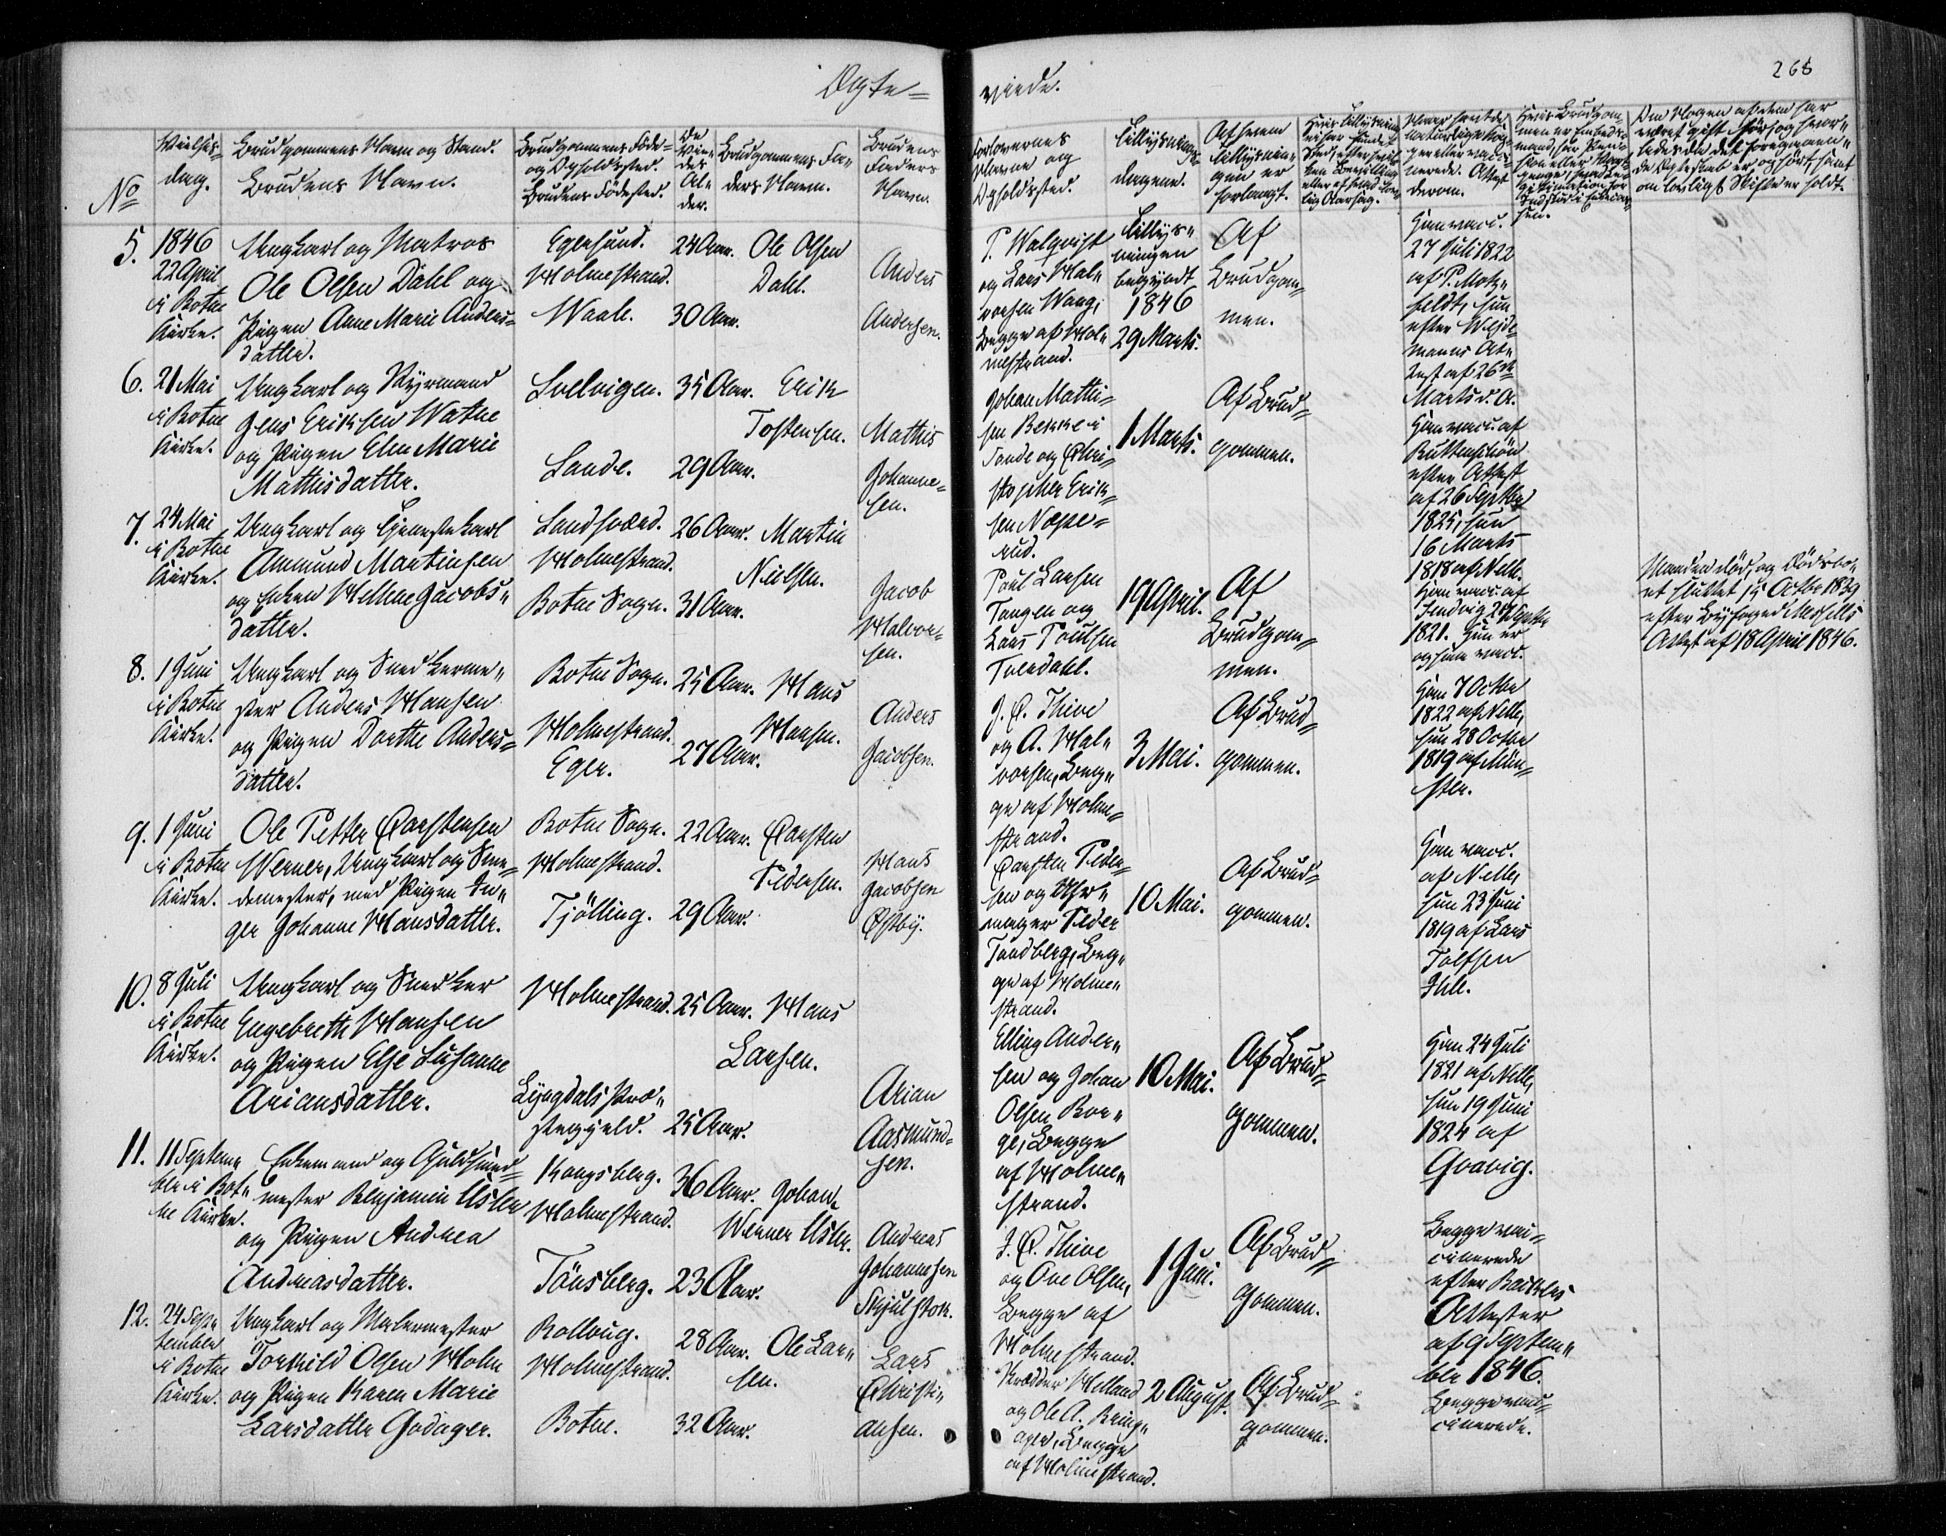 Ægte=
viede.
268
No
Vielses-
dag.
Brudgommens Navn og Stand.
Brudens Navn.
Brudgommens Føde-
og Opholdssted.
Brudens Fødested.
De
Vie-
des
Al-
der.
Brudgommens Fa-
ders Navn.
Brudens
Faders
Navn.
Forlovernes
Navne og
Opholdssted.
Tillysnings-
dagene.
Af hvem
Tillysnin-
gen er
forlangt.
5.
1846
22 April
i Botne
Kirke.
Ungkarl og Matros
Ole Olsen Dahl og
Pigen Anne Marie Anders=
datter.
Egersund.
Holmestrand.
Waale.
24 Aar.
30 Aar.
Ole Olsen
Dahl.
Anders
Andersen.
P. Walqvist
og Lars Hal-
vorsen Wang,
begge af Hol-
mestrand.
Tillys-
ningen
begyndt
1846
29 Marts.
Af
Brudgom-
men.
Han vacc.
27 Juli 1822
af P. Motz-
feldt, hun
efter Wejde-
manns At-
test af 26de
Marts d. A.
6.
21 Mai
i Botne
Kirke.
Ungkarl og Styrmand
Jens Eriksen Watne
og Pigen Elen Marie
Mathisdatter.
Svelvigen.
Sande.
35 Aar.
29 Aar.
Erik
Tostensen.
Mathis
Johanne-
sen.
Johan Matthi-
sen Bekke i
Sande og Chri-
stopher Erik-
sen Næse-
rud.
1 Marts.
Af Brud=
gommen.
Han vacc. af
efter Attest
af 26 Septbr
1825, hun
16 Marts
1818 af Nelle.
7.
24 Mai
i Botne
Kirke.
Ungkarl og Tjenestekarl
Ammund Martinsen
og Enken Helene Jacobs-
datter.
Sandsværd.
Holmestrand.
Botne Sogn.
26 Aar.
31 Aar.
Martin
Nielsen.
Jacob
Halvor-
sen.
Poul Larsen
Tangen og
Lars Poulsen
19 April.
Af
Brudgom-
men.
Han vacc. af
1821. Hun er
ogsaa vacc.
Manden død, og Dødsbo-
et sluttet 15 Octbr 1839
efter Byfoged
Attest af 18 April 1846.
8.
1 Juni
i Botne
Kirke.
Ungkarl og Snedkerme-
ster Anders Hansen
og Pigen Dorthe Anders=
datter.
Botne Sogn.
Holmestrand.
Eger.
25 Aar.
27 Aar.
Hans
Hansen.
Anders
Jacobsen.
J. C. Thive
og A. Hal-
vorsen, beg-
ge af Holme-
strand.
3 Mai.
Af Brud=
gommen.
Han 7 Octbr
1822 af Nelle,
hun 28 Octbr
1819 af Mün-
ster.
9.
1 Juni
i Botne
Kirke.
Ole Petter Carstensen
Werner, Ungkarl og Sme-
demester, med Pigen In-
ger Johanne Hansdatter.
Botne Sogn.
Holmestrand.
Tjölling.
22 Aar.
29 Aar.
Carsten
Pedersen.
Hans
Jacobsen
Østby.
Carsten Peder-
sen og Uhr-
mager Peder
Sandberg, beg-
ge af Holme-
strand.
10 Mai.
Af Brud=
gommen.
Han vacc.
af Nelle,
hun 23 Juni
1819 af Lars
Tolfsen
10.
8 Juli
i Botne
Kirke.
Ungkarl og Snedker
Engebreth Hansen
og Pigen Else Susanne
Ariansdatter.
Holmestrand.
Lyngdals Præ-
stegjeld.
25 Aar.
25 Aar.
Hans
Larsen.
Arian
Aasmund-
sen.
Elling Ander-
sen og Johan
Olsen Bor-
ge, begge
af Holme-
strand.
10 Mai.
Af Brud=
gommen.
Han 24 Juli
1821 af Nelle,
hun 19 Juni
1824 af
Gravig.
11.
11 Septem-
ber i Bot-
ne Kirke.
Enkemand og Guldsmed=
mester Benjamin Usler
og Pigen Andrea
Andreasdatter.
Kongsberg.
Holmestrand.
Tönsberg.
36 Aar.
23 Aar.
Johan
Werner Usler.
Andreas
Johannesen
J. C. Thive
og Ove Olsen,
begge af
Holmestrand.
1 Juni.
Af Brud=
gommen.
Begge vac-
cinerede
efter
Attester
af 9 Septem-
ber 1846.
12.
24 Sep-
tember
i Botne
Kirke.
Ungkarl og Malermester
Torkild Olsen Holm
og Pigen Karen Marie
Larsdatter Godager.
Rollaug.
Holmestrand.
Botne.
28 Aar.
32 Aar.
Ole Lar-
sen.
Lars
Christi-
ansen.
Skrædder Helland
og Ole A. Bring-
ager, begge
af Holmestrand.
2 August.
Af Brud=
gommen.
Begge vac-
cinerede.